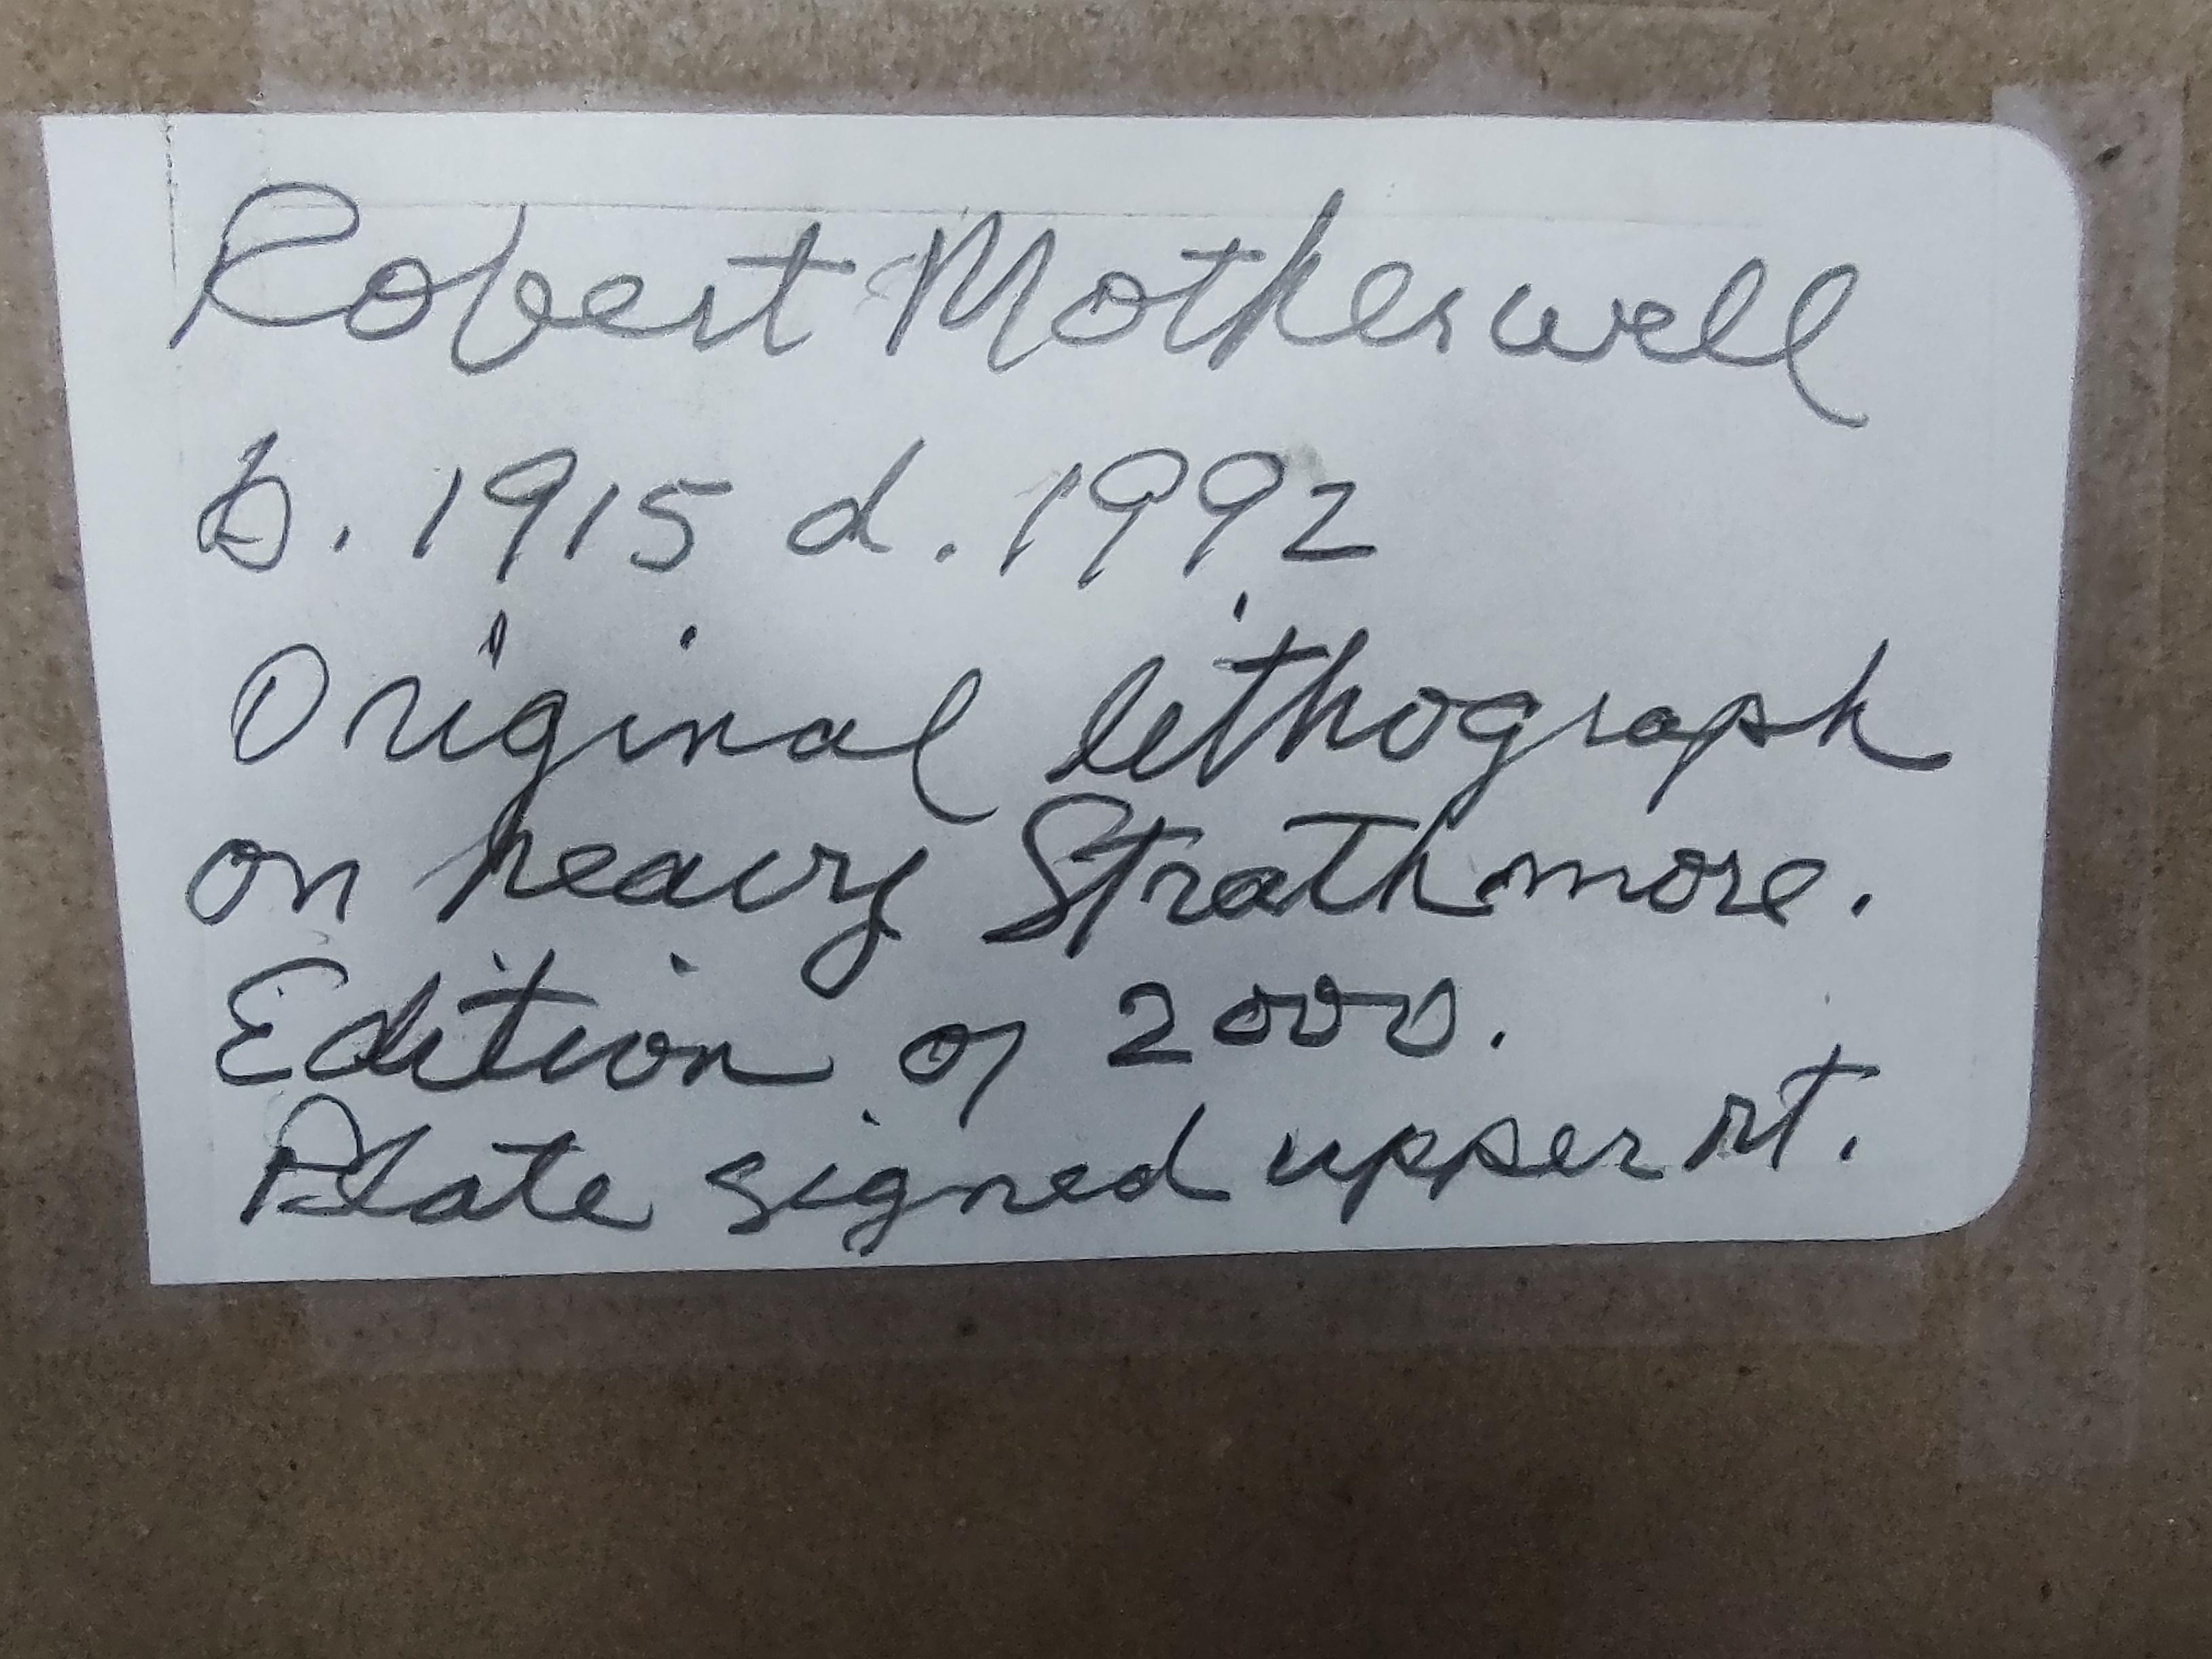 Robert Motherwell
b. 1915 d. 1992
Original lithograph
on heavy Strathmore.
Edition of 2000.
Plate signed upper rt.